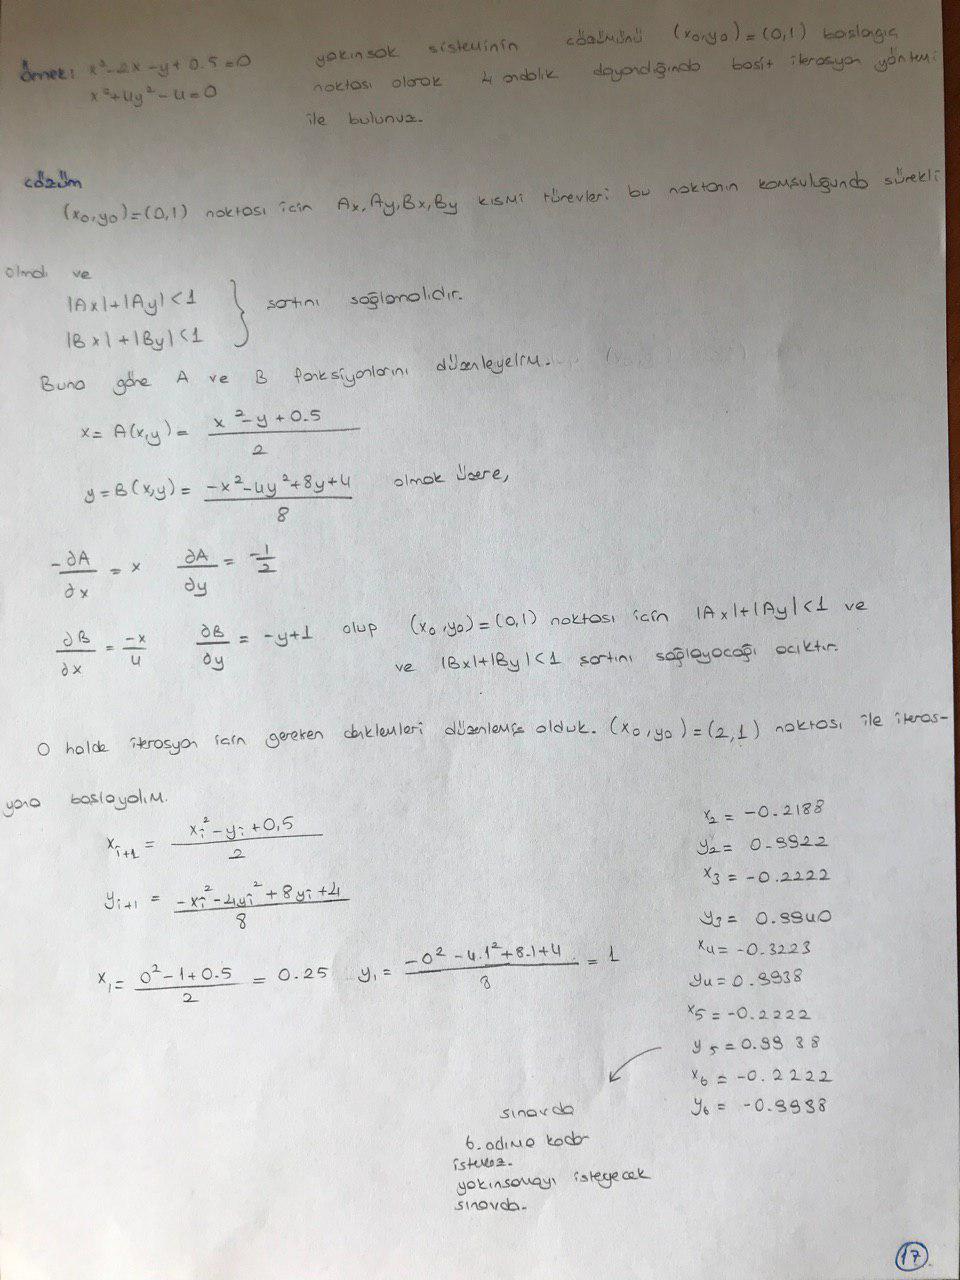 Örnek: x²-2x-y+0.5=0 yakınsak sisteminin çözümünü (x₀,y₀)=(0,1) başlangıç
x²+4y²-4=0 noktası olarak 4 ondalık dayandığında basit iterasyon yöntemi
ile bulunuz.
çözüm
(x₀,y₀)=(0,1) noktası için Ax, Ay, Bx, By kısmi türevleri bu noktanın komşuluğunda sürekli
olmalı ve
|Ax|+|Ay|<1
|Bx|+|By|<1 } şartını sağlamalıdır.
Buna göre A ve B fonksiyonlarını düzenleyelim.
x= A(x,y)= (x²-y+0.5)/2
y=B(x,y)= (-x²-4y²+8y+4)/8 olmak üzere,
-∂A/∂x = x ∂A/∂y = -1/2
∂B/∂x = -x/4 ∂B/∂y = -y+1 olup (x₀,y₀)=(0,1) noktası için |Ax|+|Ay|<1 ve
ve |Bx|+|By|<1 şartını sağlayacağı açıktır.
O halde iterasyon için gereken denklemleri düzenlemiş olduk. (x₀,y₀)=(2,1) noktası ile iteras-
yona başlayalım.
xᵢ₊₁ = (xᵢ²-yᵢ+0,5)/2
yᵢ₊₁ = (-xᵢ²-4yᵢ²+8yᵢ+4)/8
x₁= (0²-1+0.5)/2 = 0.25 y₁= (-0²-4.1²+8.1+4)/8 = 1
x₂ = -0.2188
y₂= 0.9922
x₃ = -0.2222
y₃ = 0.9940
x₄ = -0.3223
y₄ = 0.9938
x₅ = -0.2222
y₅ = 0.9938
x₆ = -0.2222
y₆ = -0.9938
sınavda
6. adıma kadar
istemez.
yakınsamayı isteyecek
sınavda.
17